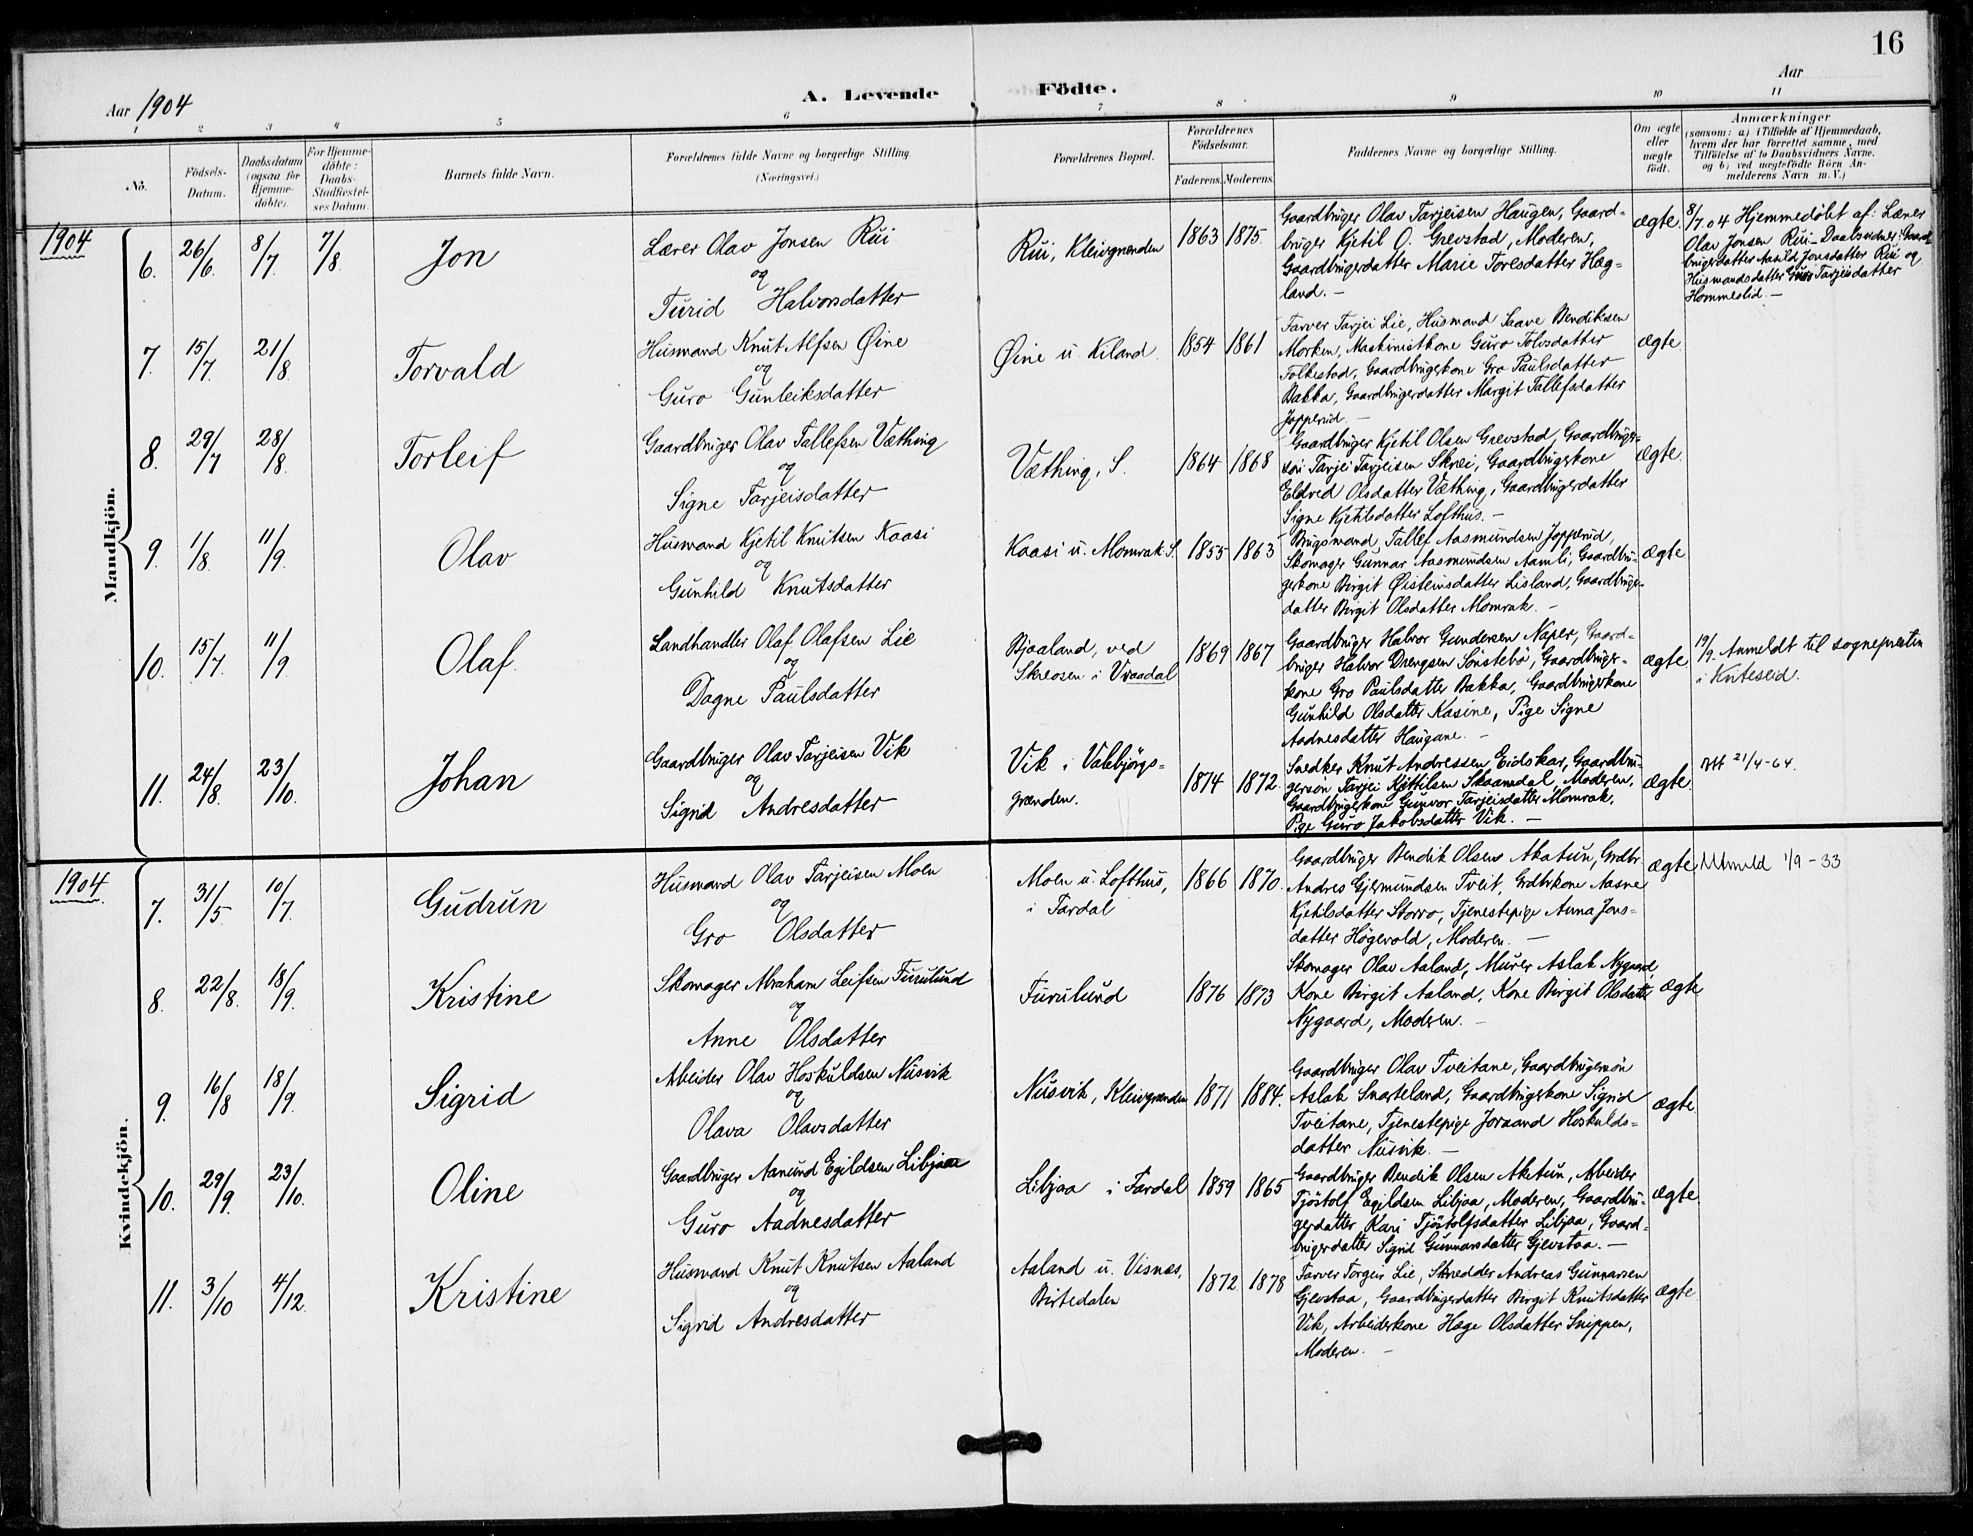 16
Aar 1904
A. Levende Födte.
Aar
1 2 3 4 5 6 7 8 9 10 11
No.
Födsels-
Datum.
Daabsdatum
(ogsaa for
Hjemme-
döbte).
For Hjemme-
döbte:
Daabs-
Stadfæstel-
ses Datum.
Barnets fulde Navn.
Forældrenes fulde Navne og borgerlige Stilling
(Næringsvei.)
Forældrenes Bopæl.
Forældrenes
Födselsaar.
Faderens. Moderens.
Faddernes Navne og borgerlige Stilling.
Om ægte
eller
uægte
födt.
Anmærkninger
(saasom: a) i Tilfælde af Hjemmedaab,
hvem der har forrettet samme, med
Tilföielse af to Daabsvidners Navne.
og b) ved uægtefödte Börn An-
melderens Navn m. V.)
1904
Mandkjön.
6. 26/6. 8/7. 7/8. Jon
Lærer Olav Jonsen Rui
og
Turid Halvorsdatter
Rui, Kleivgrænden 1863 1875.
Gaardbruger Olav Tarjeisen Haugen, Gaard-
bruger Kjetil O. Grevstad, Moderen,
Gaardbrugerdatter Marie Toresdatter Hæg-
land. —
ægte
8/7 04 Hjemmedøbt af: Lærer
Olav Jonsen Rui - Daabsvidner: Gaard-
brugerdatter Aasild Jonsdatter Rui og
Husmandsdatter Guro Tarjeisdatter
Hommeslid. —
7. 15/7. 21/8. Torvald
Husmand Knut Alfsen Øine
og
Guro Gunleiksdatter
Øine u. Kiland. 1854 1861
Farver Tarjei Lie, Husmand Saave Bendiksen
Morken, Maskinistkone Guro Tolvsdatter
Folkestad, Gaardbrugerkone Gro Paulsdatter
Bakka, Gaardbrugerdatter Margit Tallefsdatter
Jopperud. —
ægte
8. 29/7 28/8. Torleif
Gaardbruger Olav Tallefsen Væthing
og
Signe Tarjeisdatter
Væthing, S. 1864 1868
Gaardbruger Kjetil Olsen Grevstad, Gaardbruger-
søn Tarjei Tarjeisen Skræi, Gaardbrugerkone
Eldred Olsdatter Væthing, Gaardbrugerdatter
Signe Kjetilsdatter Lofthus. —
ægte.
9. 1/8. 11/9. Olav
Husmand Kjetil Knutsen Kaasi
og
Gunhild Knutsdatter
Kaasi u. Momrak S. 1855 1863
Brugsmand Tallef Aasmundsen Jopperud,
Skomager Gunnar Aasmundsen Aamli, Gaardbru-
gerkone Birgit Øisteinsdatter Lisland, Gaardbruger-
datter Birgit Olsdatter Momrak. —
ægte
10. 15/7. 11/9. Olaf.
Landhandler Olaf Olafsen Lie
og
Dagne Paulsdatter
Bjaaland, ved
Skreosen i Vraadal 1869 1867
Gaardbruger Halvor Gundersen Naper, Gaard-
bruger Halvor Drengsen Sønstebø, Gaardbruger-
kone Gro Paulsdatter Bakka, Gaardbrugerkone
Gunhild Olsdatter Kasine, Pige Signe
Aadnesdatter Haugane. —
ægte
19/9. Anmeldt til sognepresten
i Kviteseid.
11. 24/8. 23/10. Johan
Gaardbruger Olav Tarjeisen Vik
og
Sigrid Andresdatter
Vik i Vaabjørgs-
grænden. 1874 1872.
Snedker Knut Andressen Eidskar, Gaardbru-
gersøn Tarjei Kjettilsen Skaamdal, Moderen,
Gaardbrugerkone Gunvor Tarjeisdatter Momrak,
Pige Guro Jakobsdatter Vik. —
ægte.
Att 21/4-64.
1904
Kvindekjön.
7. 31/5. 10/7. Gudrun
Husmand Olav Tarjeisen Moen
og
Gro Olsdatter
Moen u. Lofthus,
i Fardal 1866 1870.
Gaardbruger Bendik Olsen Akatun, Grdbr.
Andres Gjermundsen Tveit, Grdbrkone Aasne
Kjetilsdatter Storro, Tjenestepige Anna Jons-
datter Høgevold, Moderen. —
ægte
Utmeld 1/9 - 33
8. 22/8. 18/9. Kristine
Skomager Abraham Leifsen Furulund
og
Anne Olsdatter
Furulund 1876 1873
Skomager Olav Aaland, Murer Aslak Nygaard,
Kone Birgit Aaland, Kone Birgit Olsdatter
Nygaard, Moderen. —
ægte
9. 16/8 18/9. Sigrid
Arbeider Olav Hoskuldsen Nusvik
og
Olava Olavsdatter
Nusvik, Kleivgrænden 1871 1884.
Gaardbruger Olav Tveitane, Gaardbrugersøn
Aslak Snarteland, Gaardbrugerkone Sigrid
Tveitane, Tjenestepige Joraand Hoskulds-
datter Nusvik. —
ægte
10. 29/9. 23/10. Oline
Gaardbruger Aanund Egildsen Libjaa
og
Guro Aadnesdatter
Libjaa i Fardal 1859 1865
Gaardbruger Bendik Olsen Akatun, Arbeider
Tjøstolf Egildsen Libjaa, Moderen, Gaardbru-
gerdatter Kari Tjøstolfsdatter Libjaa, Gaard-
brugerdatter Sigrid Gunnarsdatter Gjevstaa. —
ægte
11. 3/10 4/12. Kristine
Husmand Knut Knutsen Aaland
og
Sigrid Andresdatter
Aaland u. Visnæs,
Birtedalen 1872 1878
Farver Torgeir Lie, Skredder Andreas Gunnarsen
Gjevstaa, Gaardbrugerdatter Birgit Knutsdatter
Vik, Arbeiderkone Hæge Olsdatter Snippen,
Moderen. —
ægte